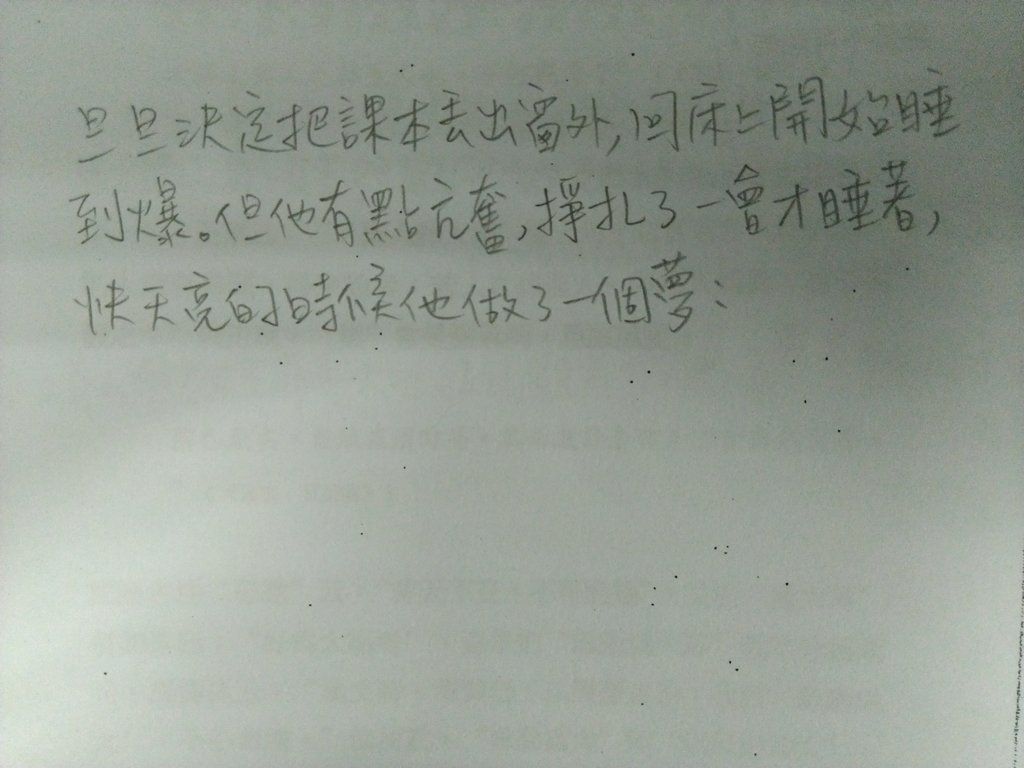 旦旦決定把課本丟出窗外,回床上開始睡
到爆。但他有點亢奮,掙扎了一會才睡著,
快天亮的時候他做了一個夢: